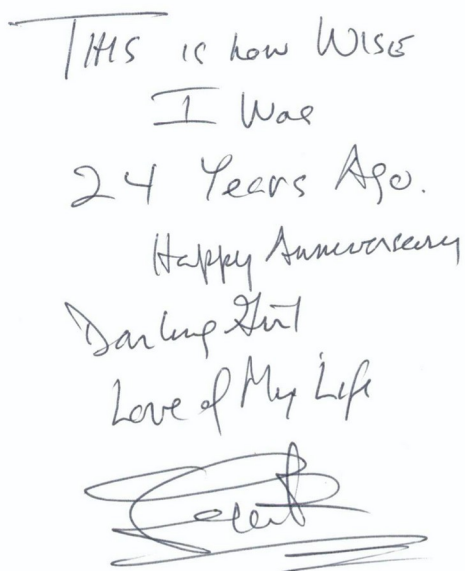 THIS is how WISE
I Was
24 Years Ago.
Happy Anniversary
Darling Girl
Love of My Life